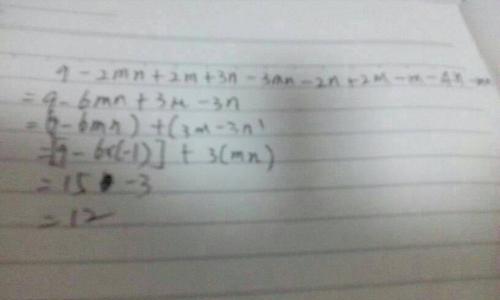 9-2mn+2m+3n-3mn-2n+2m-m-4n-mn
=9-6mn+3m-3n
=(9-6mn)+(3m-3n)
=[9-6×(-1)]+3(mn)
=15-3
=12